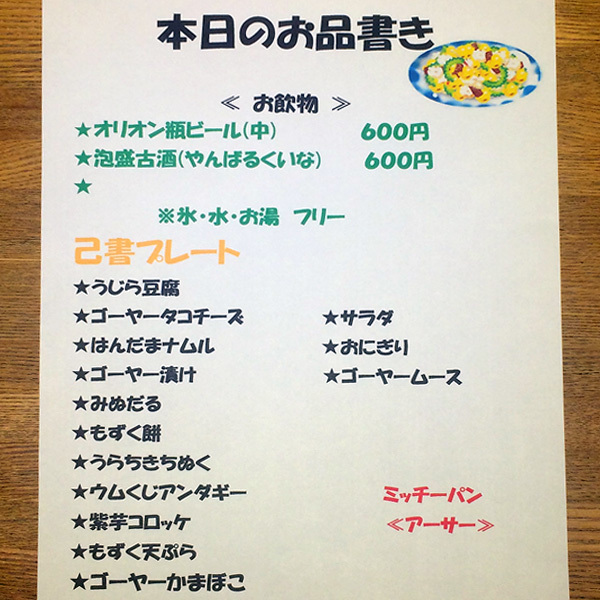 本日のお品書き
≪ お飲物 ≫
★オリオン瓶ビール(中) 600円
★泡盛古酒(やんばるくいな) 600円
★
※氷・水・お湯 フリー
己書プレート
★うじら豆腐
★ゴーヤータコチーズ ★サラダ
★はんだまナムル ★おにぎり
★ゴーヤー漬け ★ゴーヤームース
★みぬだる
★もずく餅
★うらちきちぬく
★ウムくじアンダギー ミッチーパン
★紫芋コロッケ ≪アーサー≫
★もずく天ぷら
★ゴーヤーかまぼこ